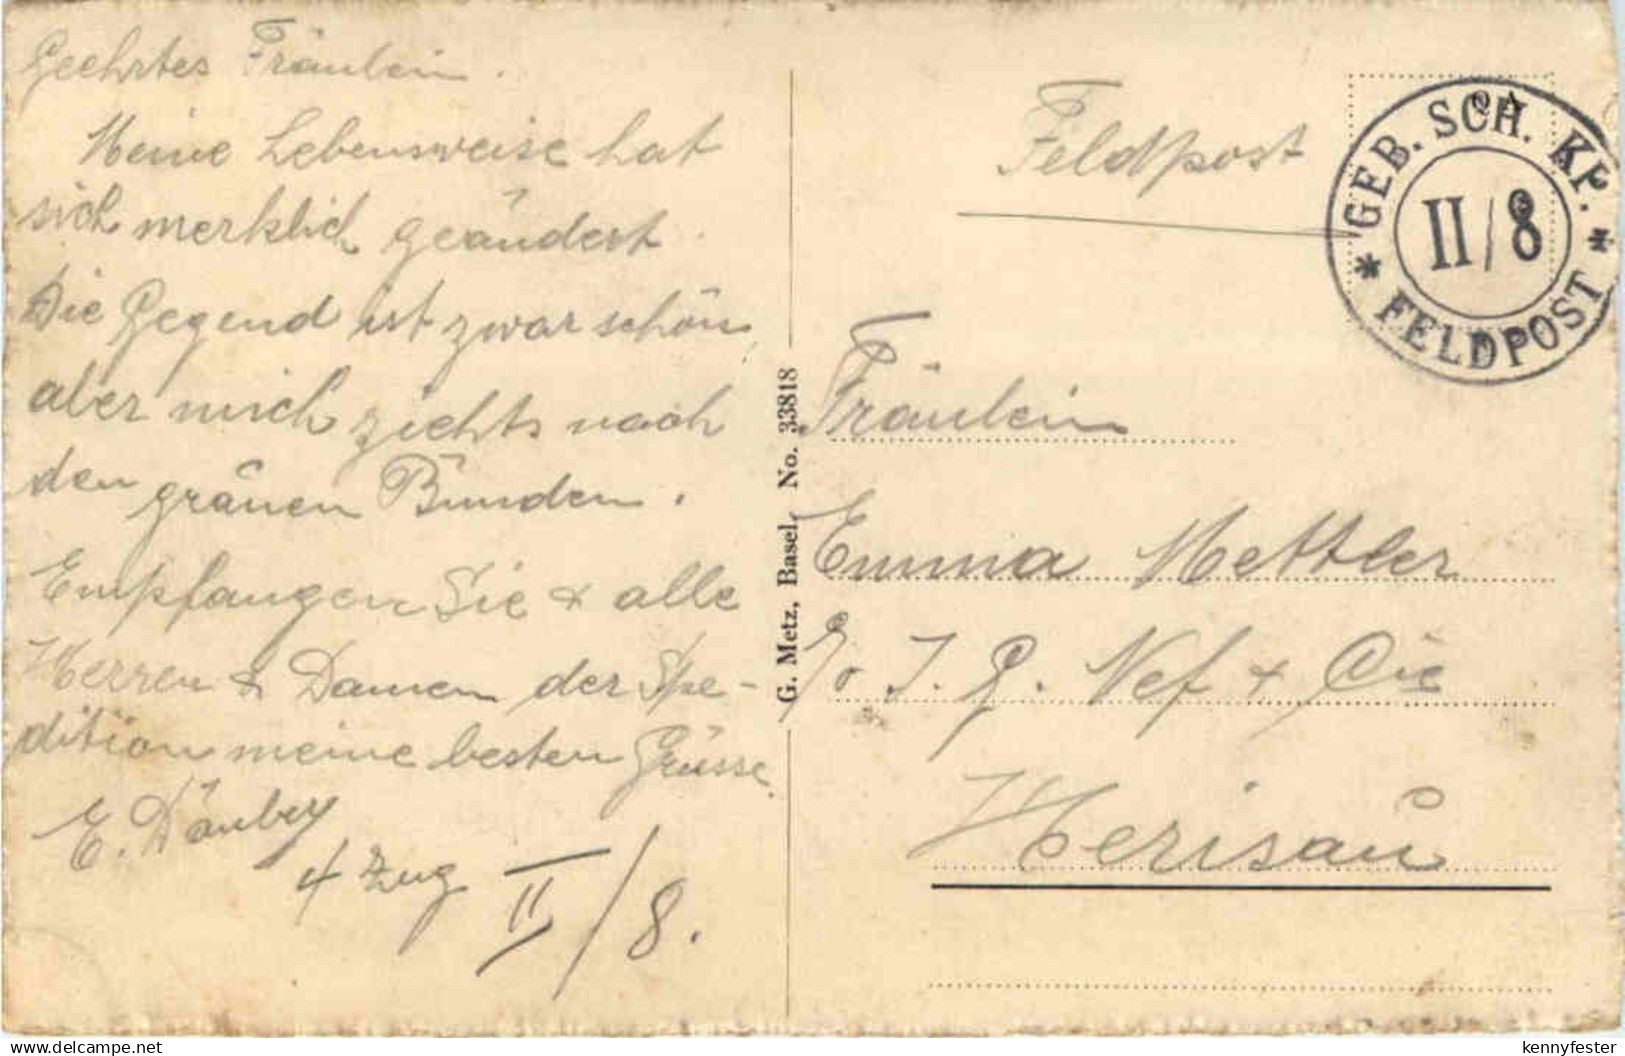 Geehrtes Fräulein.
Meine Lebensweise hat
sich merklich geändert.
Die Gegend ist zwar schön,
aber mich ziehts nach
den grauen Bünden.
Empfangen Sie & alle
Herren & Damen der Spe-
dition meine besten Grüsse.
E. Däuber
4 Zug II/8.
G. Metz, Basel, No. 33818
Feldpost
* GEB. SCH. KP. *
II/8
FELDPOST
Fräulein
Emma Mettler
c/o J. G. Nef & Cie
Herisau
www.delcampe.net
kennyfester